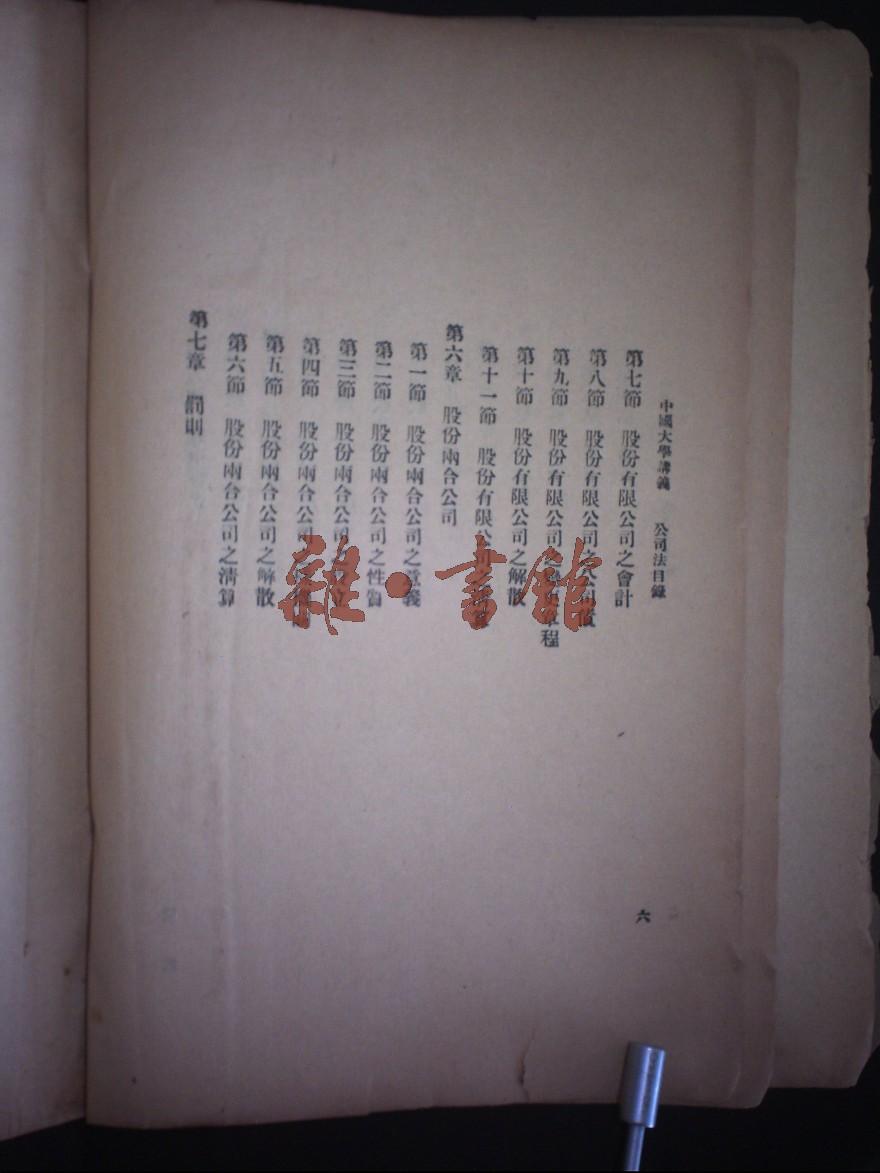 中國大學講義 公司法目錄
第七節 股份有限公司之會計
第八節 股份有限公司之公司債
第九節 股份有限公司之變更章程
第十節 股份有限公司之解散
第十一節 股份有限公司之
第六章 股份兩合公司
第一節 股份兩合公司之意義
第二節 股份兩合公司之性質
第三節 股份兩合公司之設立
第四節 股份兩合公司
第五節 股份兩合公司之解散
第六節 股份兩合公司之清算
第七章 罰則
六
雜·書館